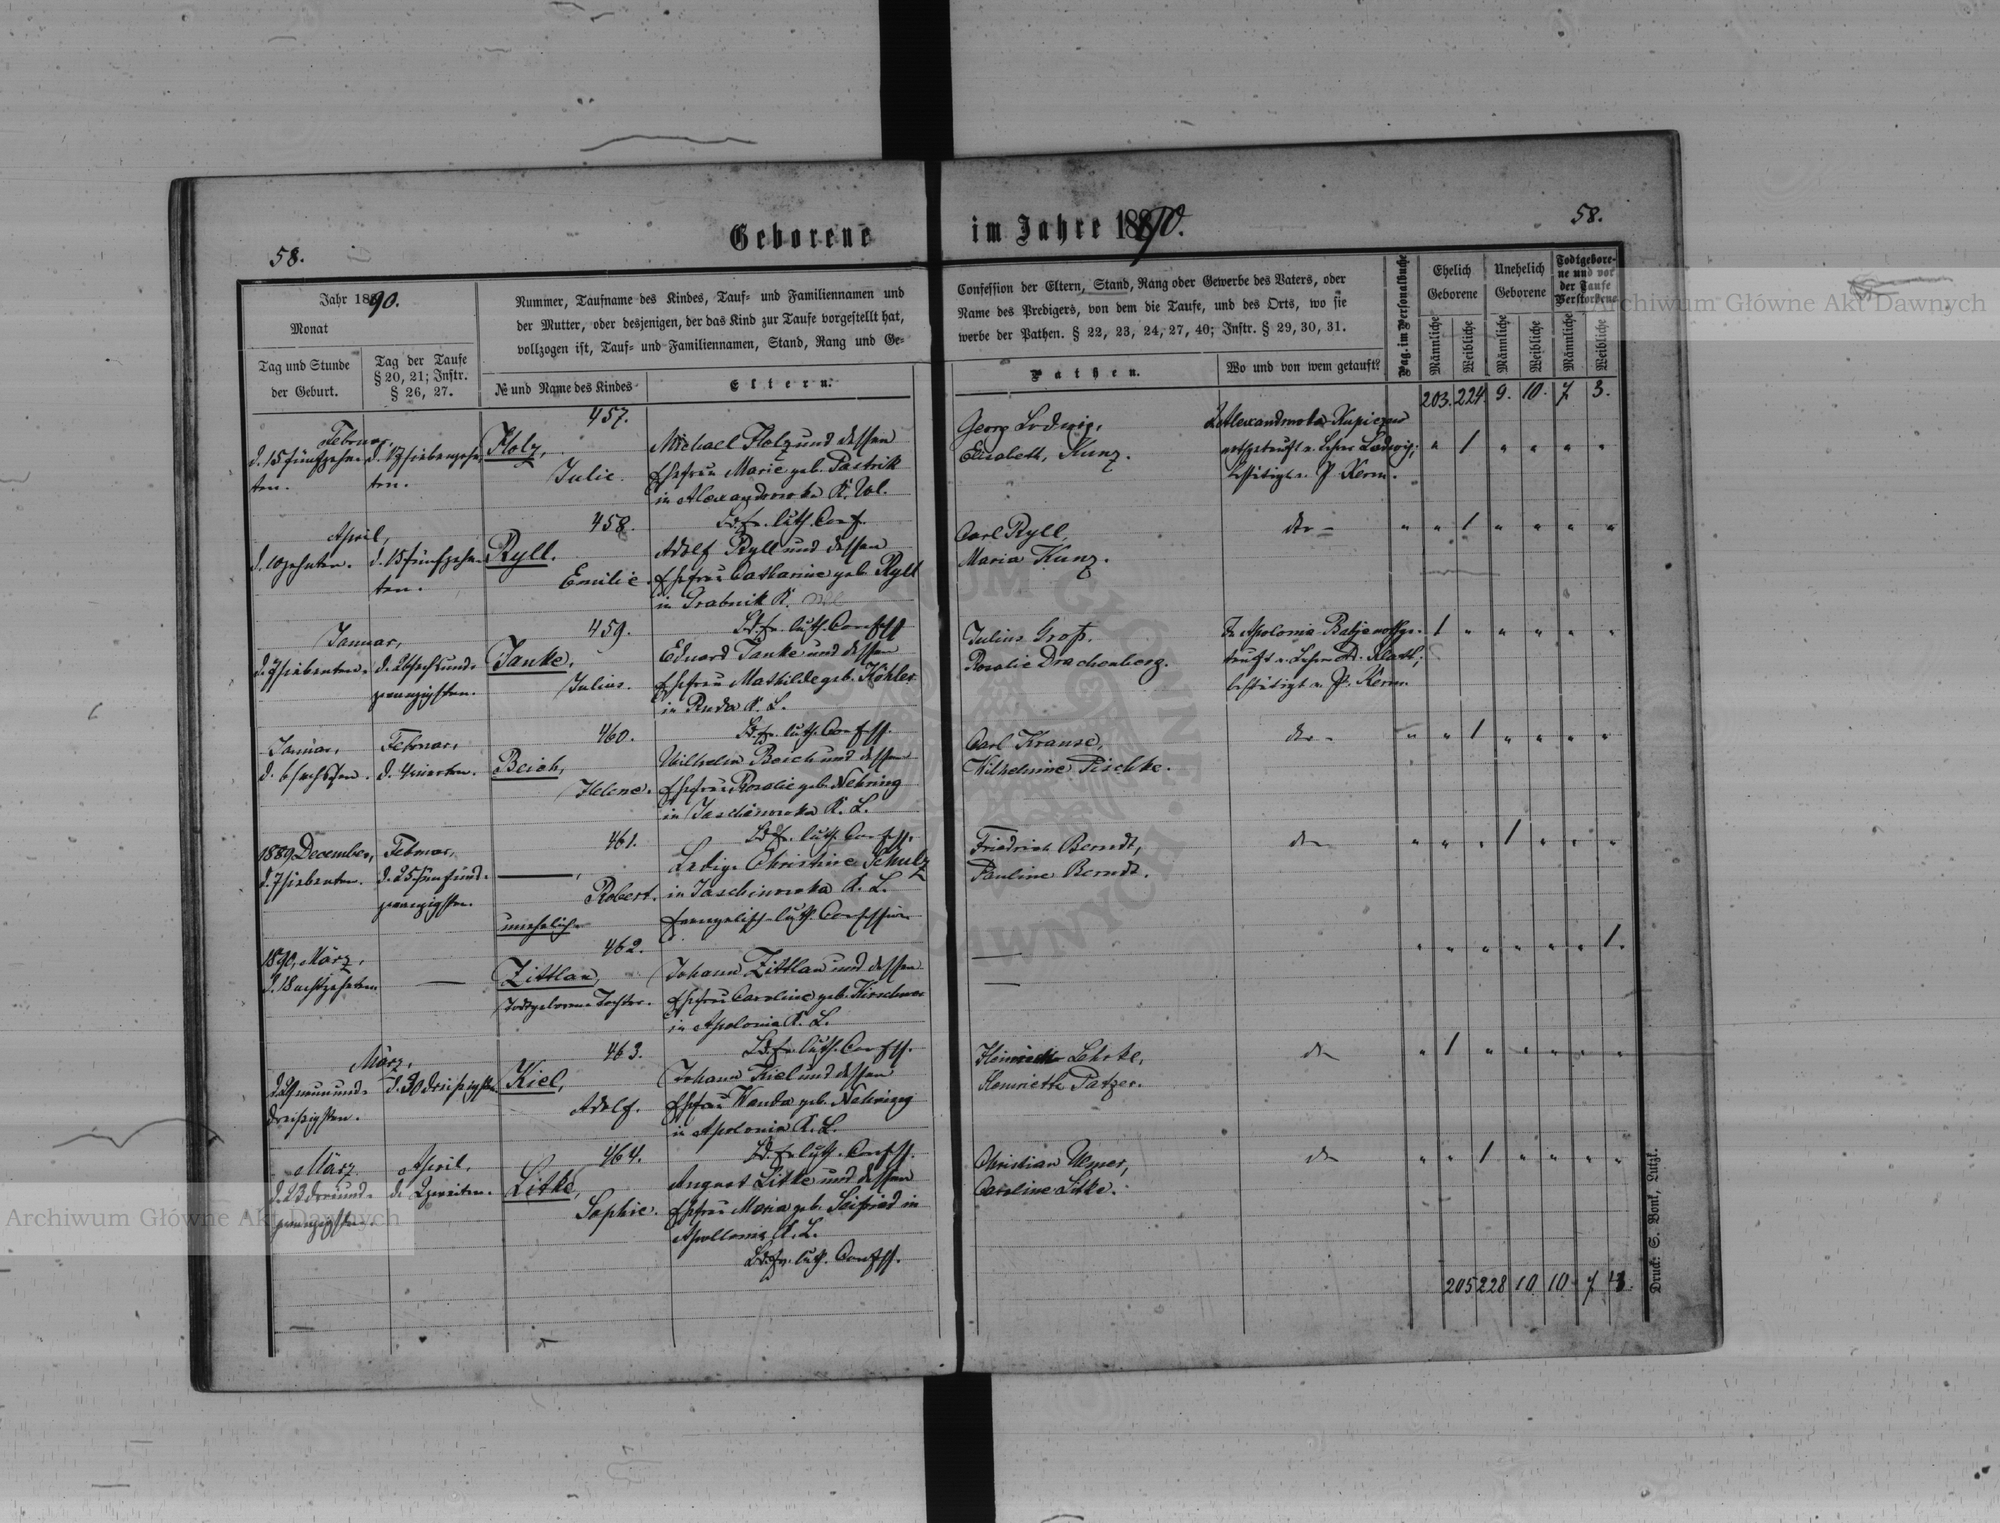 58.
Geborene
im Jahre 1890.
58.
Jahr 1890.
Monat
Tag und Stunde
der Geburt.
Tag der Taufe
§ 20, 21; Instr.
§ 26, 27.
Nummer, Taufname des Kindes, Tauf- und Familiennamen und
der Mutter, oder desjenigen, der das Kind zur Taufe vorgestellt hat,
vollzogen ist, Tauf- und Familiennamen, Stand, Rang und Ge-
№ und Name des Kindes
Eltern.
Confession der Eltern, Stand, Rang oder Gewerbe des Vaters, oder
Name des Predigers, von dem die Taufe, und des Orts, wo sie
werbe der Pathen. § 22, 23, 24, 27, 40; Instr. § 29, 30, 31.
Pathen.
Wo und von wem getauft?
Pag. im Personalbuche
Ehelich
Geborene
Unehelich
Geborene
Todtgebore-
ne und vor
der Taufe
Verstorbene
Männliche
Weibliche
Männliche
Weibliche
Männliche
Weibliche
203. 224. 9. 10. 7 3.
Februar,
d. 15 fünfzehn-
ten.
d. 17 siebenzehn-
ten.
457.
Holz,
Julie.
Michael Holz und dessen
Ehefrau Marie geb. Pastrik
in Alexandrowka K. Wl.
Bd. ev. luth. Conf.
Georg Ludwig,
Elisabeth Kunz.
In Alexandrowka Kupiczow
nothgetauft v. Lehrer Ludwig;
bestätigt v. P. Kerm.
" " 1 " " " "
April,
d. 10 zehnten.
d. 15 fünfzehn-
ten.
458.
Ryll.
Emilie.
Adolf Ryll und dessen
Ehefrau Catharine geb. Ryll
in Grabnik K. Wl
Bd. ev. luth. Confess
Carl Ryll,
Maria Kunz.
do -
" " 1 " " " "
Januar,
d. 7 siebenten.
d. 26 sechsund-
zwanzigsten.
459.
Janke,
Julius.
Eduard Janke und dessen
Ehefrau Mathilde geb. Köhler
in Ruda K. L.
Bd. ev. luth. Confess.
Julius Groß,
Rosalie Drachenberg.
bestätigt v. P. Kerm.
1 " " " " "
Januar,
d. 6 sechsten.
Februar,
d. 4 vierten.
460.
Beich,
Helene.
Wilhelm Beich und dessen
Ehefrau Rosalie geb. Nehring
in Jaschinowka K. L.
Bd. ev. luth. Confess.
Carl Krause,
Wilhelmine Pischke.
do -
" " 1 " " " "
1889, December,
d. 7 siebenten.
Februar,
d. 25 fünfund-
zwanzigsten.
461.
Robert.
unehelich
Ledige Christine Schulz
in Jaschinowka K. L.
Evangelisch-luth. Confession
Friedrich Berndt,
Pauline Berndt.
do
" " " 1 " " "
1890, März,
d. 18 achtzehnten
462.
Zittlau,
Todtgeborene Tochter.
Johann Zittlau und dessen
in Apolonia K. L.
Bd. ev. luth. Confess.
" " " " " " 1.
März,
d. 30 dreißigsten
dreißigsten.
463.
Kiel,
Adolf.
Johann Kiel und dessen
Ehefrau Wanda geb. Nehring
in Apolonia K. L.
Bd. ev. luth. Confess.
Heinrich Lehrke,
Henriette Patzer.
do
" 1 " " " " "
März
d. 23 dreiund-
zwanzigsten.
April,
d. 2 zweiten.
464.
Litke,
Sophie.
August Litke und dessen
Ehefrau Maria geb. Seifried in
Apollonia K. L.
Bd. ev. luth. Confess.
Christian Ulmer,
Caroline Litke.
do
" " 1 " " " "
205 228 10 10 7 4
Druck: S. Bonk, Lutzk.
Archiwum Główne Akt Dawnych
Archiwum Główne Akt Dawnych
ARCHIWUM GŁÓWNE AKT DAWNYCH